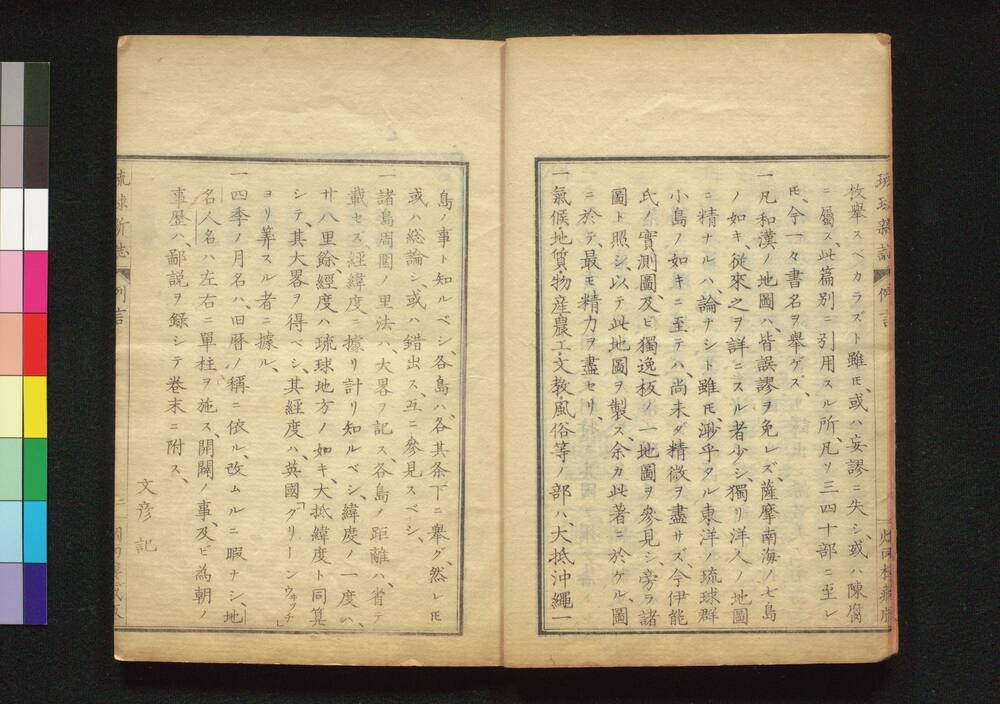 枚擧スベカラズト雖𪜈、或ハ妄謬ニ失シ、或ハ陳腐
ニ屬ス、此篇別ニ引用スル所、凡ソ三四十部ニ至レ
𪜈、今一々書名ヲ擧ゲズ、
一凡和漢ノ地圖ハ、皆誤謬ヲ免レズ、薩摩南海ノ七島
ノ如キ、從來之ヲ詳ニスル者少シ、獨リ洋人ノ地圖
ニ精ナルハ、論ナシト雖𪜈、渺乎タル東洋ノ琉球群
小島ノ如キニ至テハ、尚未ダ精微ヲ盡サズ、今伊能
氏ノ實測圖、及ビ獨逸板ノ一地圖ヲ參見シ、旁ラ諸
圖ト照シ、以テ此地圖ヲ製ス、余カ此著ニ於ケル、圖
ニ於テ、最モ精力ヲ盡セリ、
一氣候・地質・物産・農工・文教・風俗等ノ部ハ、大抵沖繩一
島ノ事ト知ルベシ、各島ハ、各其条下ニ擧グ、然レ𪜈
或ハ総論シ、或ハ錯出ス、互ニ參見スベシ、
一諸島周圍ノ里法ハ、大畧ヲ記ス各島ノ距離ハ、省テ
載セス、經緯度ニ據リ計リ知ルベシ、緯度ノ一度ハ、
廿八里餘、經度ハ琉球地方ノ如キ、大抵緯度ト同算
シテ、其大畧ヲ得ベシ、其經度ハ、英國「グリーンウォッチ」
ヨリ筭スル者ニ據ル、
一四季ノ月名ハ、旧暦ノ稱ニ依ル、改ムルニ暇ナシ、地
名人名ハ左右ニ單柱ヲ施ス、開闢ノ事、及ビ為朝ノ
事歴ハ、鄙説ヲ録シテ巻末ニ附ス、
文彦記
例言